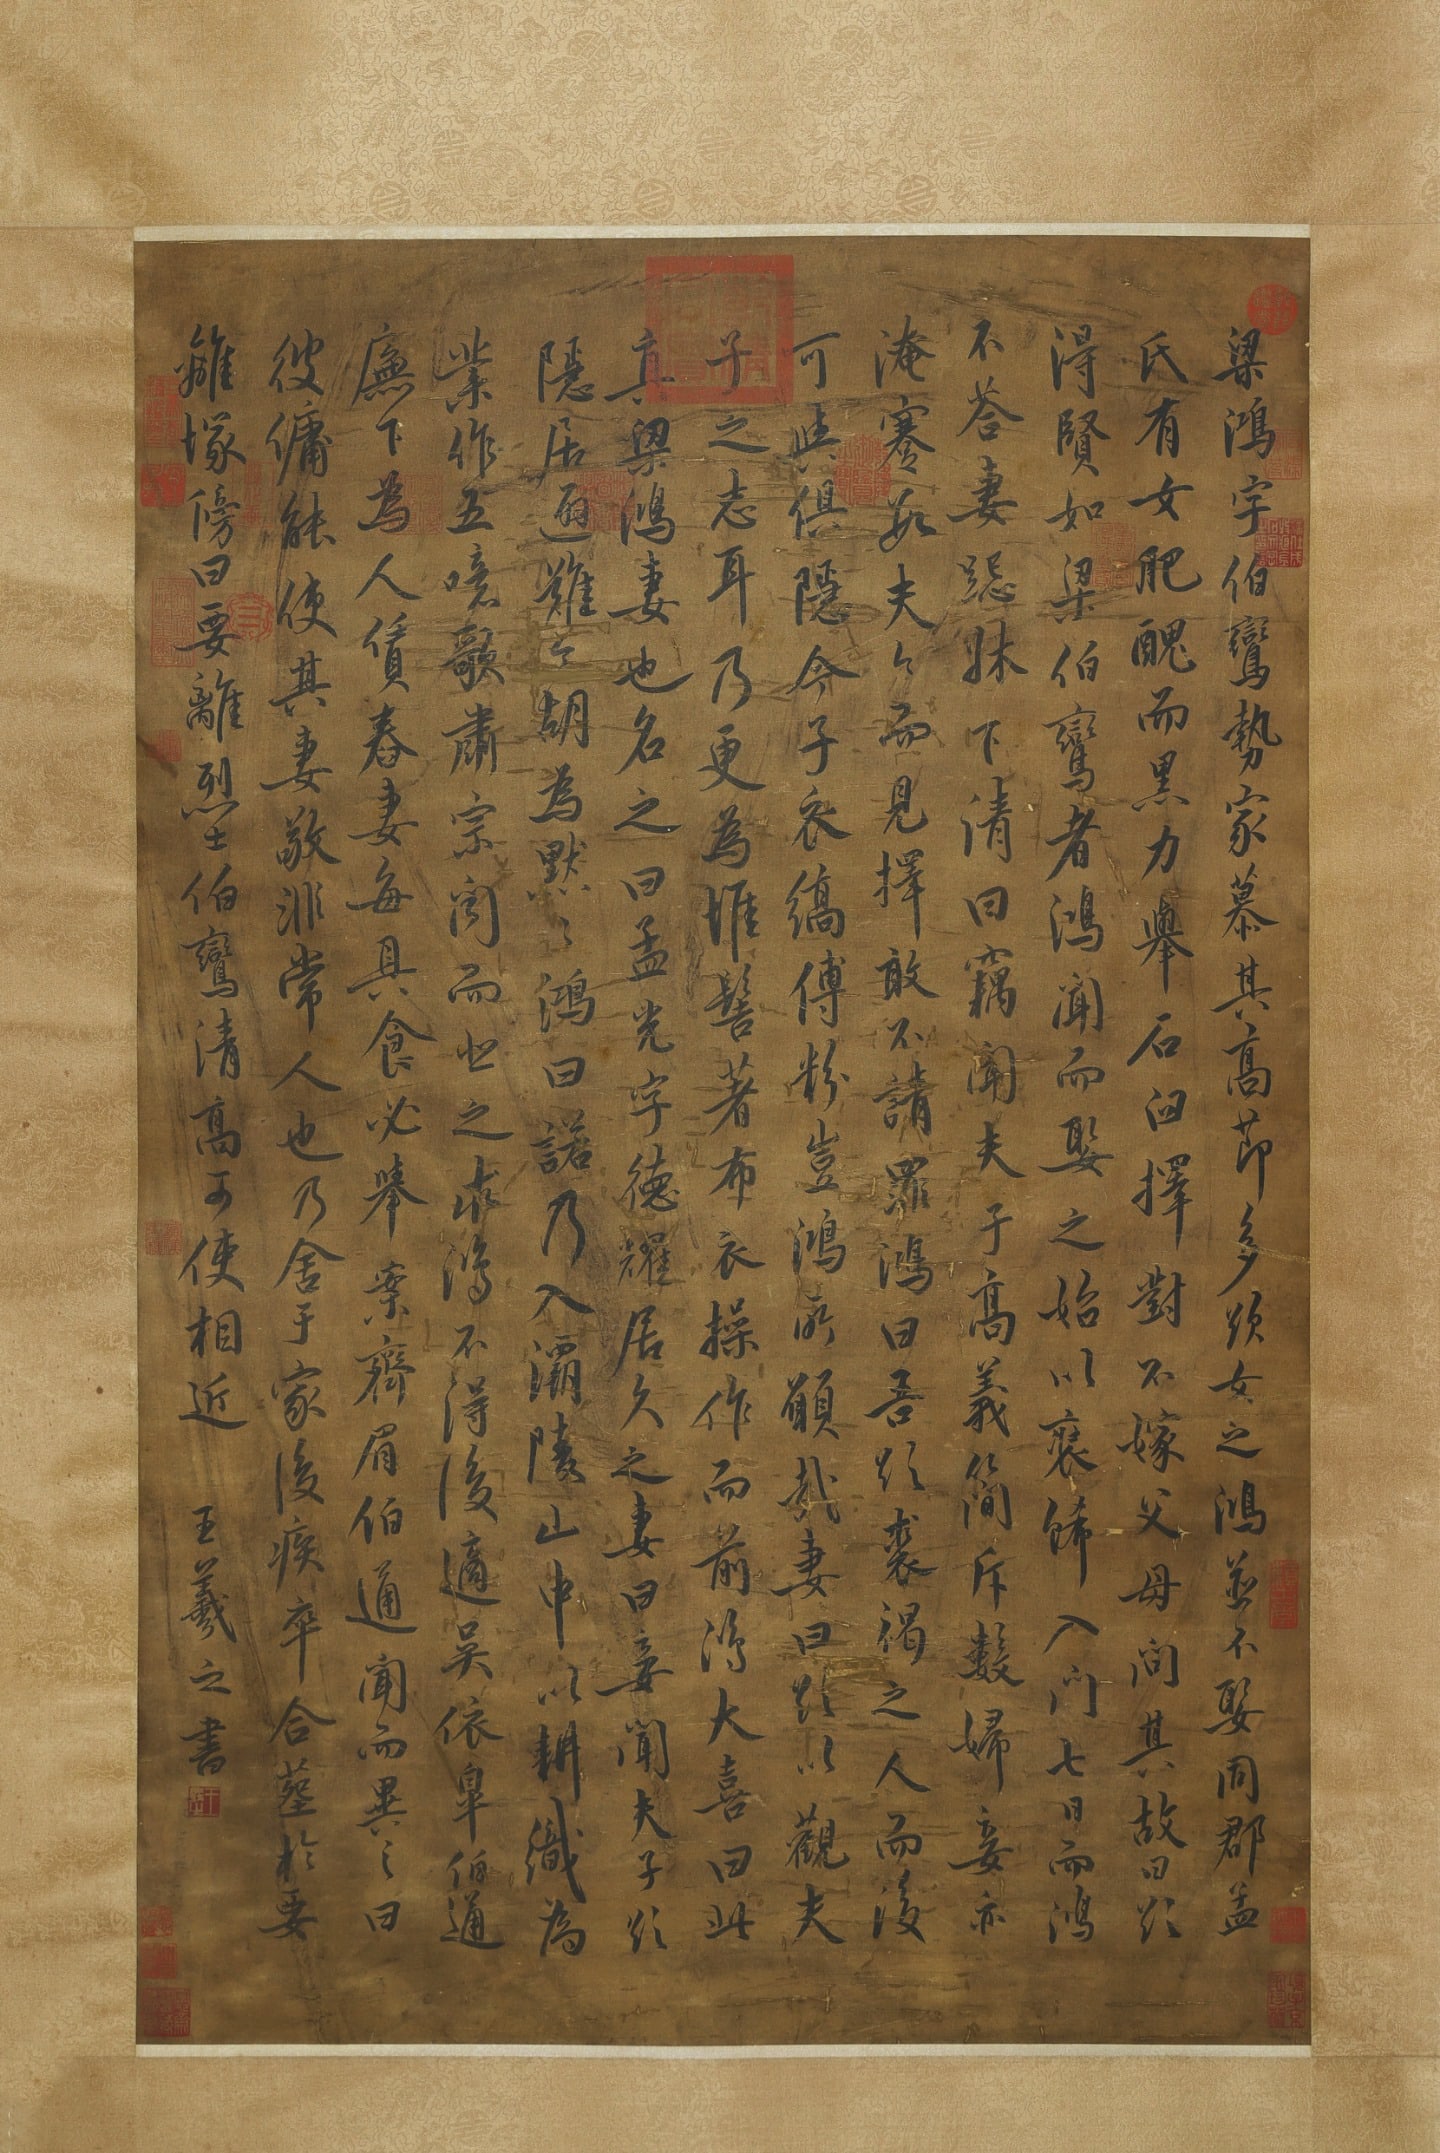 梁鴻字伯鸞勢家慕其高節多欲女之鴻並不娶同郡孟
氏有女肥醜而黑力舉石臼擇對不嫁父母問其故曰欲
得賢如梁伯鸞者鴻聞而娶之始以裝飾入門七日而鴻
不荅妻跽牀下請曰竊聞夫子高義簡斥數婦妾亦
淹蹇數夫〻而見擇敢不請罪鴻曰吾欲裘褐之人而後
可與俱隱今子衣縞傅粉豈鴻所願哉妻曰欲以觀夫
子之志耳乃更為椎髻著布衣操作而前鴻大喜曰此
真梁鴻妻也名之曰孟光字德耀居久之妻曰妾聞夫子欲
隱居避難今胡為默〻鴻曰諾乃入灞陵山中以耕織為
業作五噫歌肅宗聞而悲之求鴻不得後適吳依皐伯通
廡下為人賃舂妻每具食必舉案齊眉伯通聞而異之曰
彼傭能使其妻敬非常人也乃舍于家後疾卒合葬於要
離塚傍曰要離烈士伯鸞清高可使相近 王羲之書